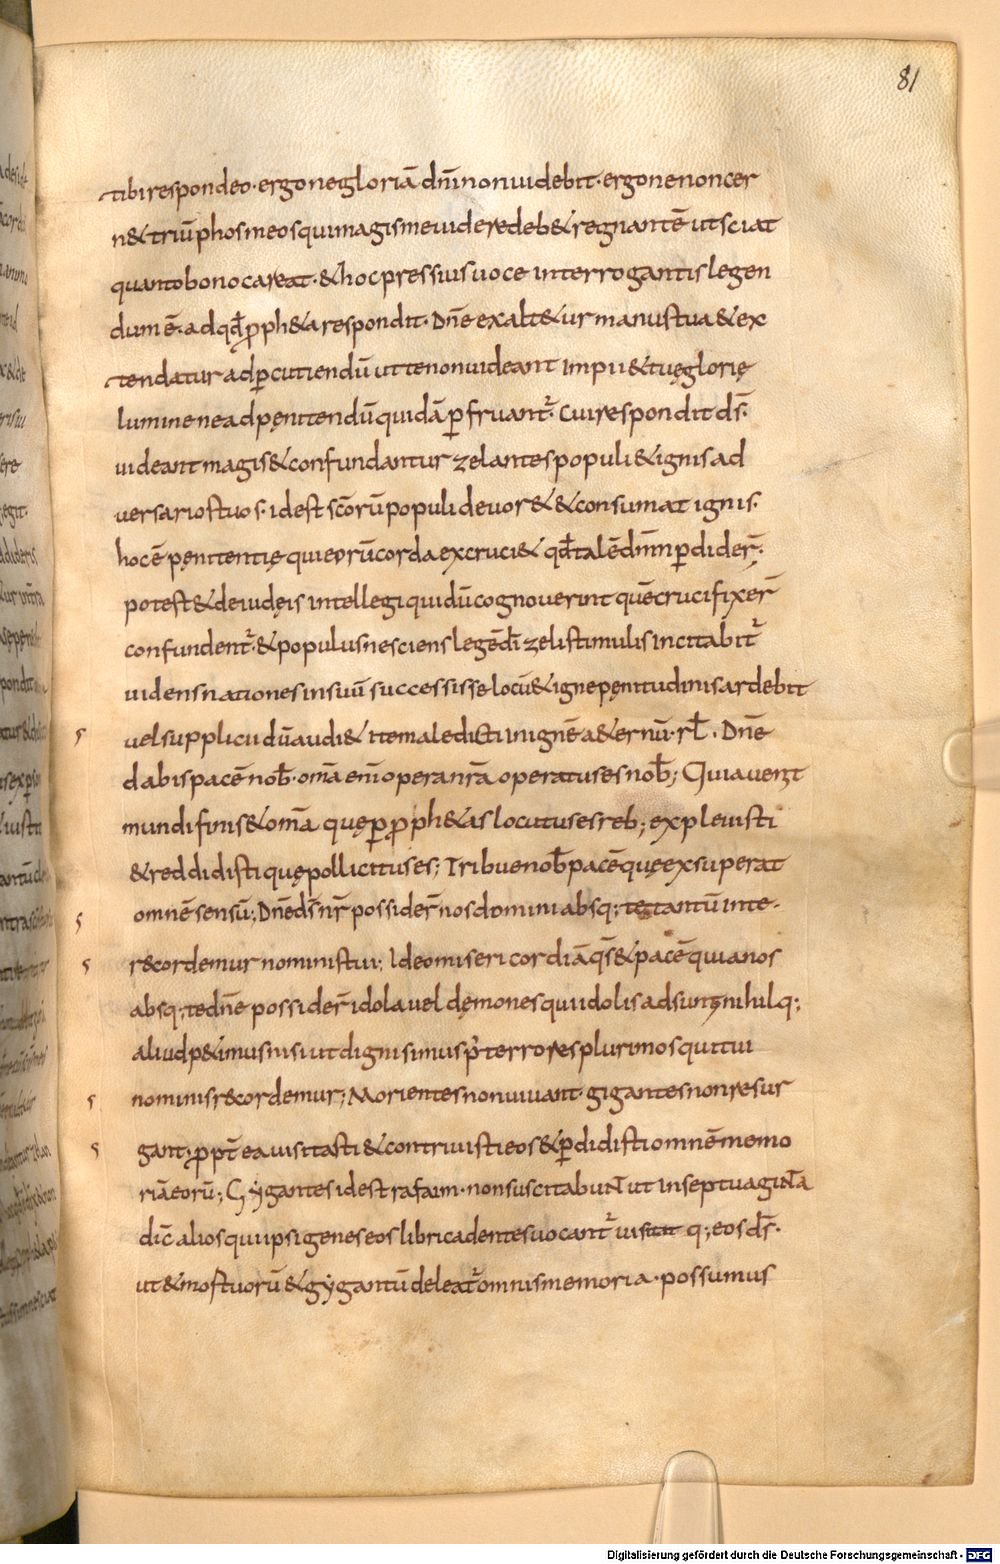 81
tibi respondeo· ergone gloriā dn̄i non uidebit· ergone non cer
n& triū phos meos qui magis me uidere deb& regnantē ut sciat
quanto bono careat· & hoc pressius uoce interrogantis legen
dum ē· ad qđ ꝓph&a respondit· Dn̄e exalt&ur manus tua & ex
tendatur ad ꝑcutiendū ut te non uideant Impii & tuę glorię
lumine ne ad pęnitendū quidā ꝑfruant᷒· Cui respondit ds̄·
uideant magis & confundantur zelantes populi & ignis ad
uersarios tuos· id est sc̄orū populi deuor& & consumat ignis·
hoc ē pęnitentię qui eorū corda excruci& qđ talē dn̄m ꝑdider̄·
potest & de iudęis intellegi qui dū cognouerint quē crucifixer̄
confundent᷒· & populus nesciens legē dī zeli stimulis incitabit᷒
uidens nationes in suū successisse locū & igne pęnitudinis ardebit
uel supplicii dū audi& ite maledicti in ignē a&ernū· rł· Dn̄e
dabis pacē nob̄· om̄a eni᷒ opera nr̄a operatus es nob̄; Quia uenit
mundi finis & om̄a quę ꝑ ꝓph&as locutus es reb; expleuisti
& reddidisti quę pollicitus es; Tribue nob̄ pacē quę exsuperat
omnē sensū; Dn̄e ds̄ nr̄ possider̄ nos domini absq; te tantū in te·
r&cordemur nominis tui; Ideo misericordiā qs̄ & pacē quia nos
absq; te dn̄e possider̄ idola uel dęmones qui idolis adsunt; nihilq;
aliud p&imus nisi ut digni simus p᷒ terrores plurimos qui tui
nominis r&cordemur; Morientes non uiuant· gigantes non resur
gant· ꝓpt̄ ea uisitasti & contriuisti eos & ꝑdidisti omnē memo
riā eorū; Gygantes id est rafaim· non suscitabunt ut in septuaginta
dic̄ alios qui ipsi geneseos libri cadentes uocant᷒ uisitat q; eos ds̄·
ut & mortuorū & gygantū deleat᷒ omnis memoria· possumus
Digitalisierung gefördert durch die Deutsche Forschungsgemeinschaft - DFG